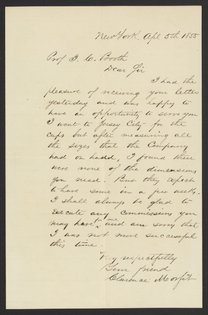 New York Apl 5th 1855
Prof J. C. Booth
Dear Sir
I had the
pleasure of receiving your letter
yesterday and was happy to
have an opportunity to serve you
I went to Jersey City for the
cups but after measuring all
the sizes that the Company
had on hand, I found there
were none of the dimensions
you need. But they expect
to have some in a few weeks,
I shall always be glad to
execute any commissions you
may have, and am sorry that
I was not more successful
this time
V. y respectfully
Your friend
Clarence Morfit